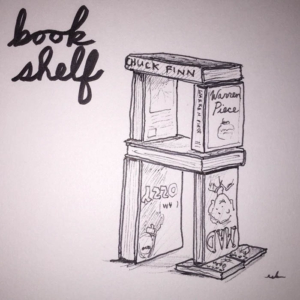 book
shelf
CHUCK FINN
Warren
Piece
OZZY
MAD